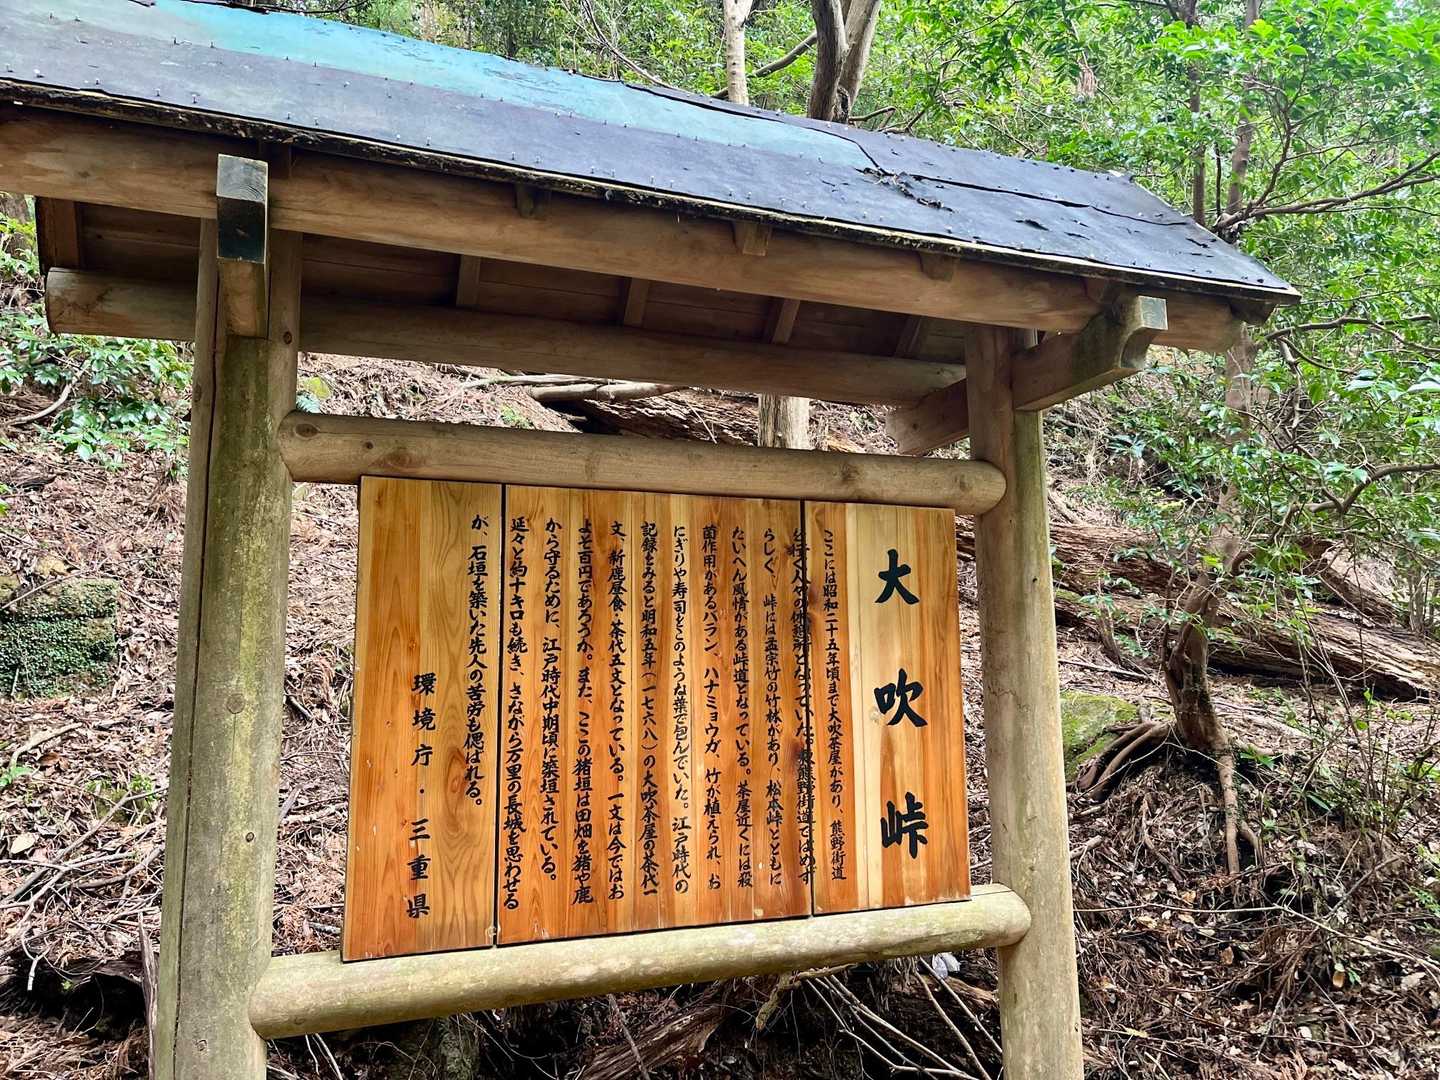 大吹峠
ここには昭和二十五年頃まで大吹茶屋があり、熊野街道
を行く人々の休憩所となっていた。熊野街道ではめず
らしく、峠には孟宗竹の竹林があり、松本峠とともに
たいへん風情がある峠道となっている。茶屋近くには殺
菌作用があるバラン、ハナミョウガ、竹が植えられ、お
にぎりや寿司をこのような葉で包んでいた。江戸時代の
記録をみると明和五年(一七六八)の大吹茶屋の茶代一
文、新鹿昼食・茶代五文となっている。一文は今ではお
よそ百円であろうか。また、ここの猪垣は田畑を猪や鹿
から守るために、江戸時代中期頃に築垣されている。
延々と約十キロも続き、さながら万里の長城を思わせる
が、石垣を築いた先人の苦労も偲ばれる。
環境庁・三重県